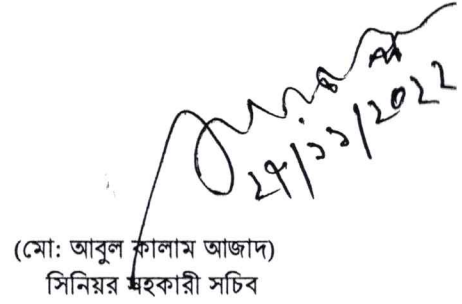 ২৭/১১/২০২২
(মো: আবুল কালাম আজাদ)
সিনিয়র সহকারী সচিব